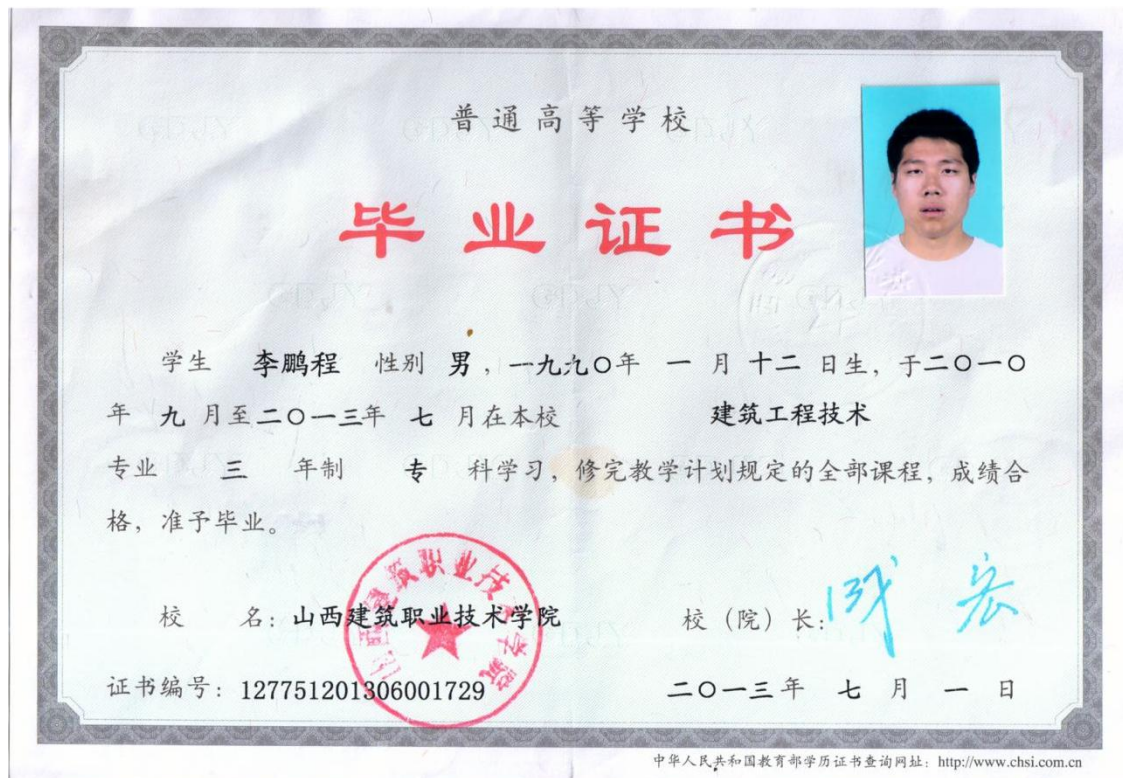 普通高等学校
毕业证书
学生 李鹏程 性别 男，一九九〇年 一 月 十二 日生，于二〇一〇
年 九 月至二〇一三年 七 月在本校 建筑工程技术
专业 三 年制 专 科学习，修完教学计划规定的全部课程，成绩合
格，准予毕业。
校 名：山西建筑职业技术学院 校（院）长：
证书编号：127751201306001729 二〇一三年 七 月 一 日
山西建筑职业技术学院
中华人民共和国教育部学历证书查询网址：http://www.chsi.com.cn